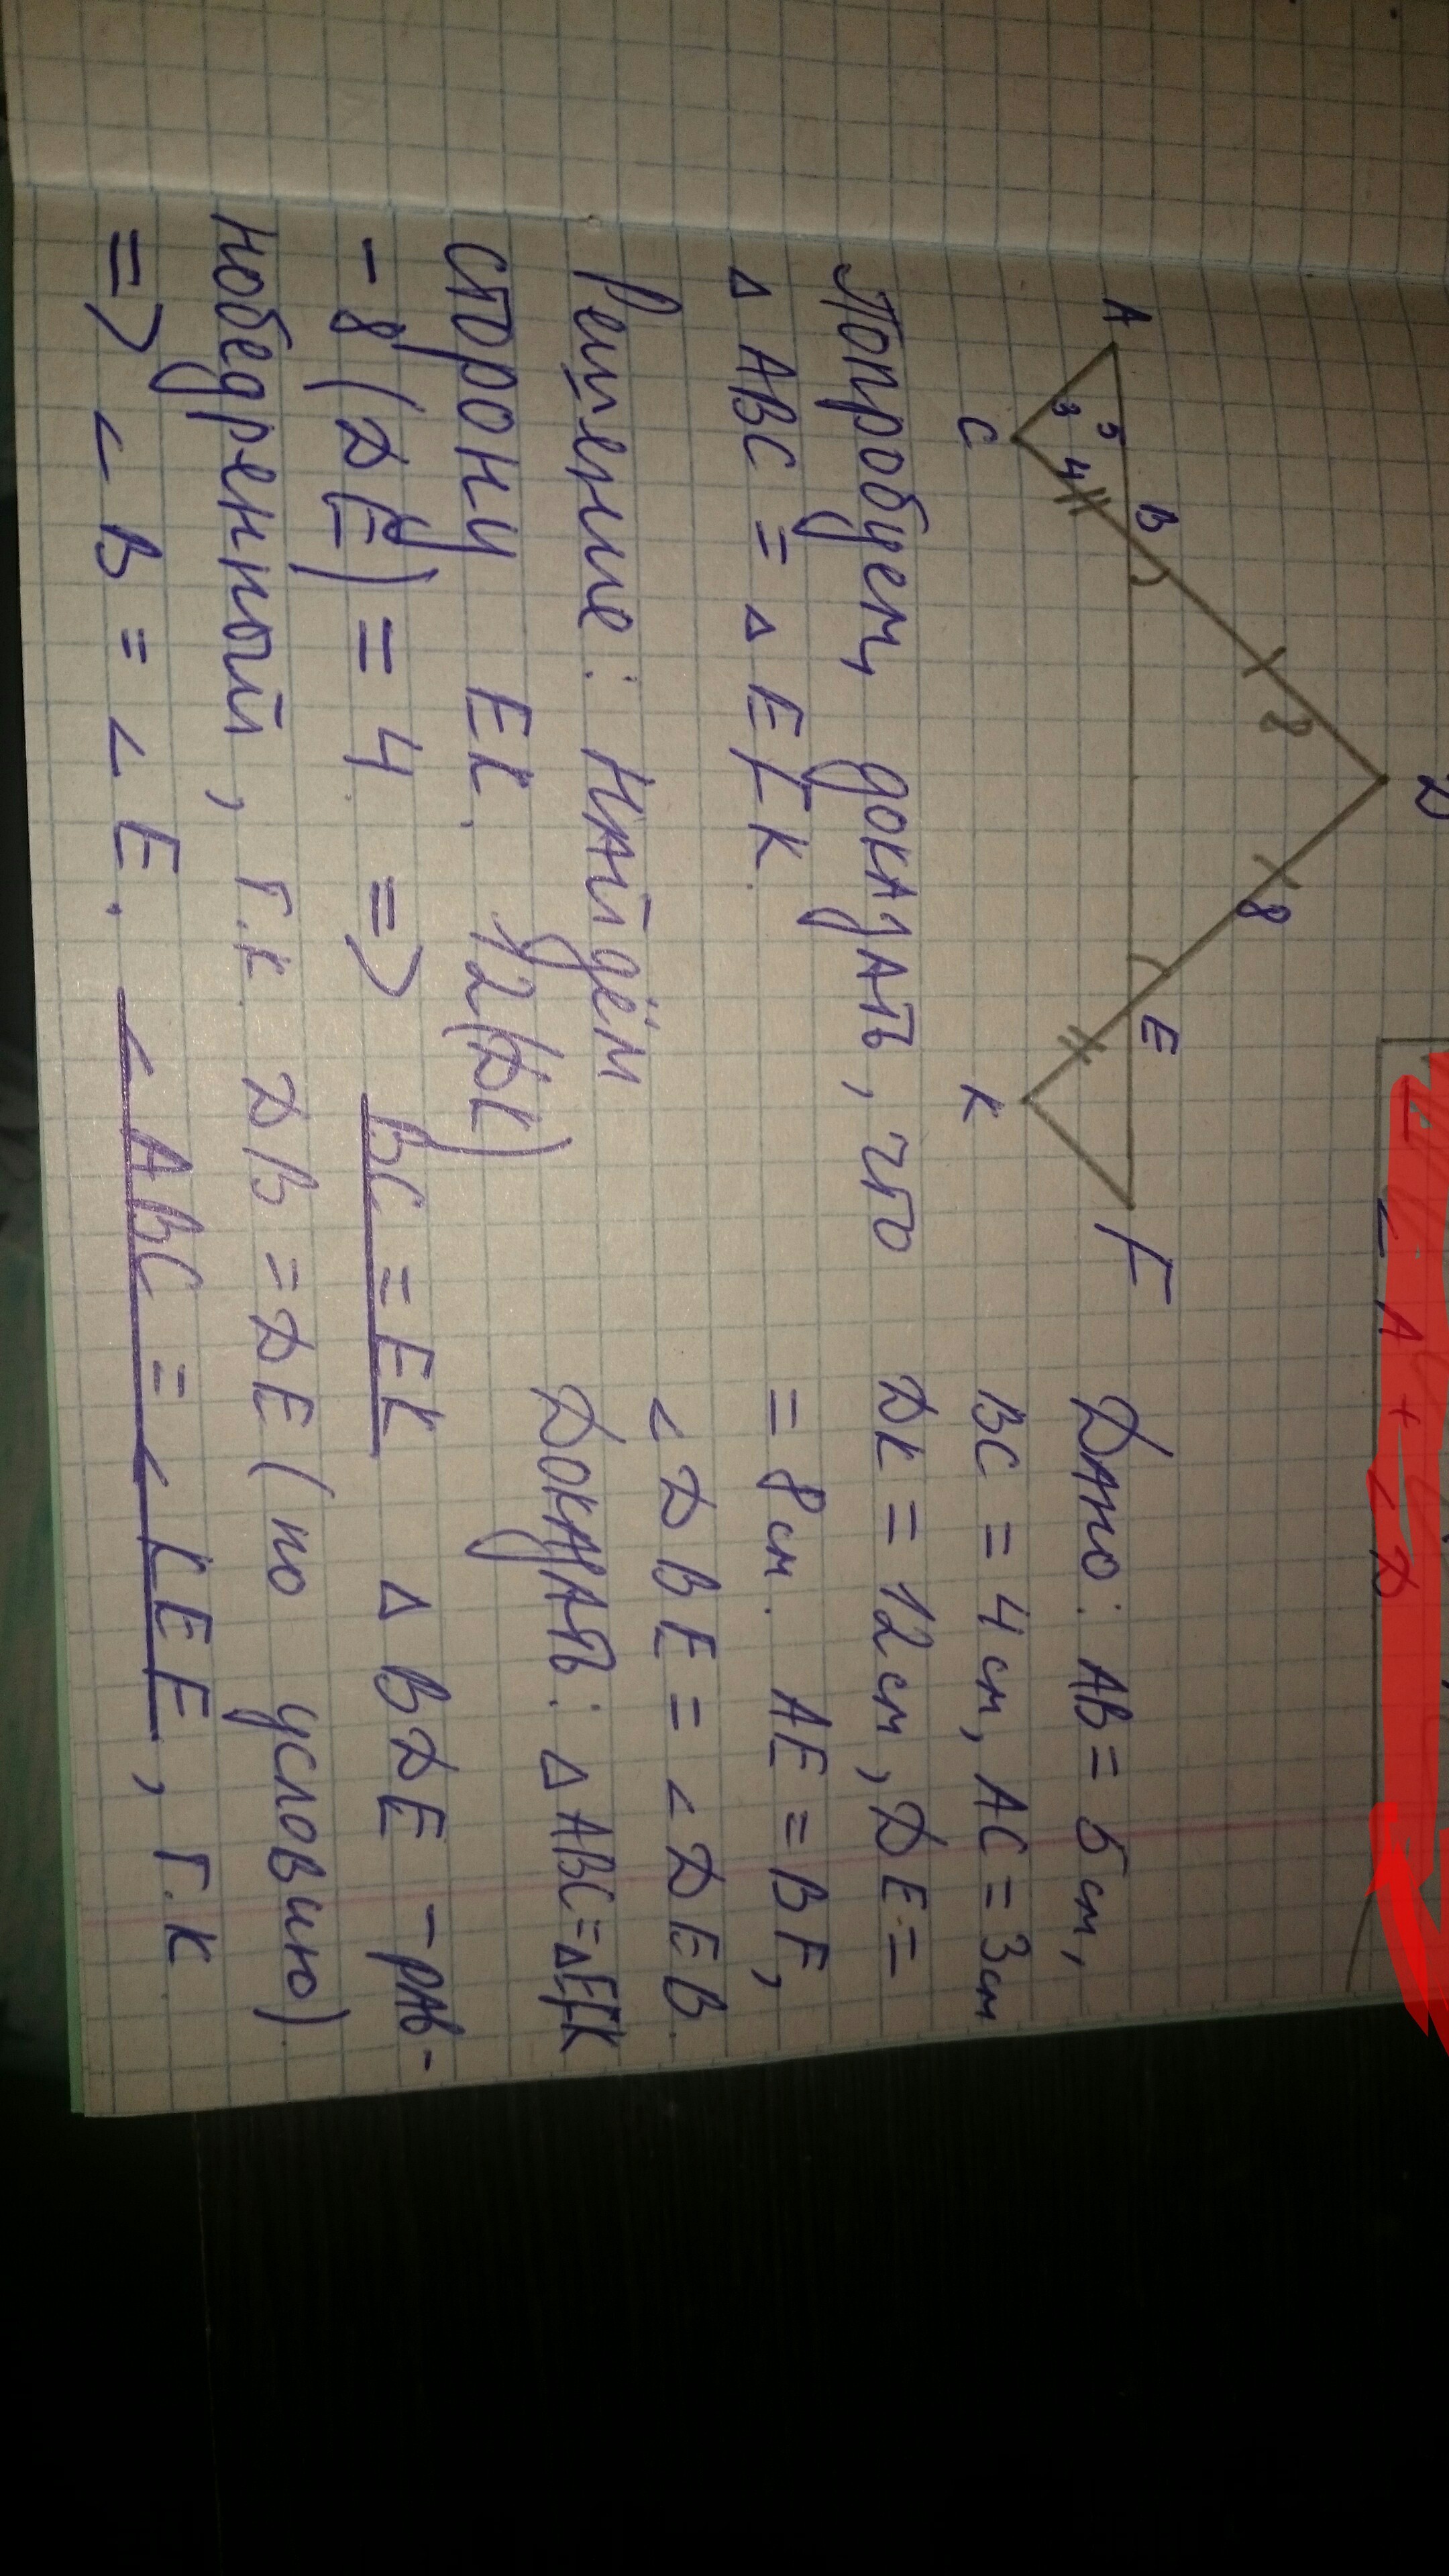 ∠A + ∠D
D
A
5
B
8
8
E
F
3
4
C
K
Дано: AB = 5 см,
BC = 4 см, AC = 3 см
DK = 12 см, DE =
= 8 см. AE = BF,
∠DBE = ∠DEB.
Доказать: △ABC = △EFK
Попробуем доказать, что
△ABC = △EFK.
Решение: Найдём
сторону EK. 12(DK)
- 8(DE) = 4 => BC = EK △BDE - рав-
нобедренный, т.к. DB = DE (по условию)
=> ∠B = ∠E. ∠ABC = ∠KEF, т.к